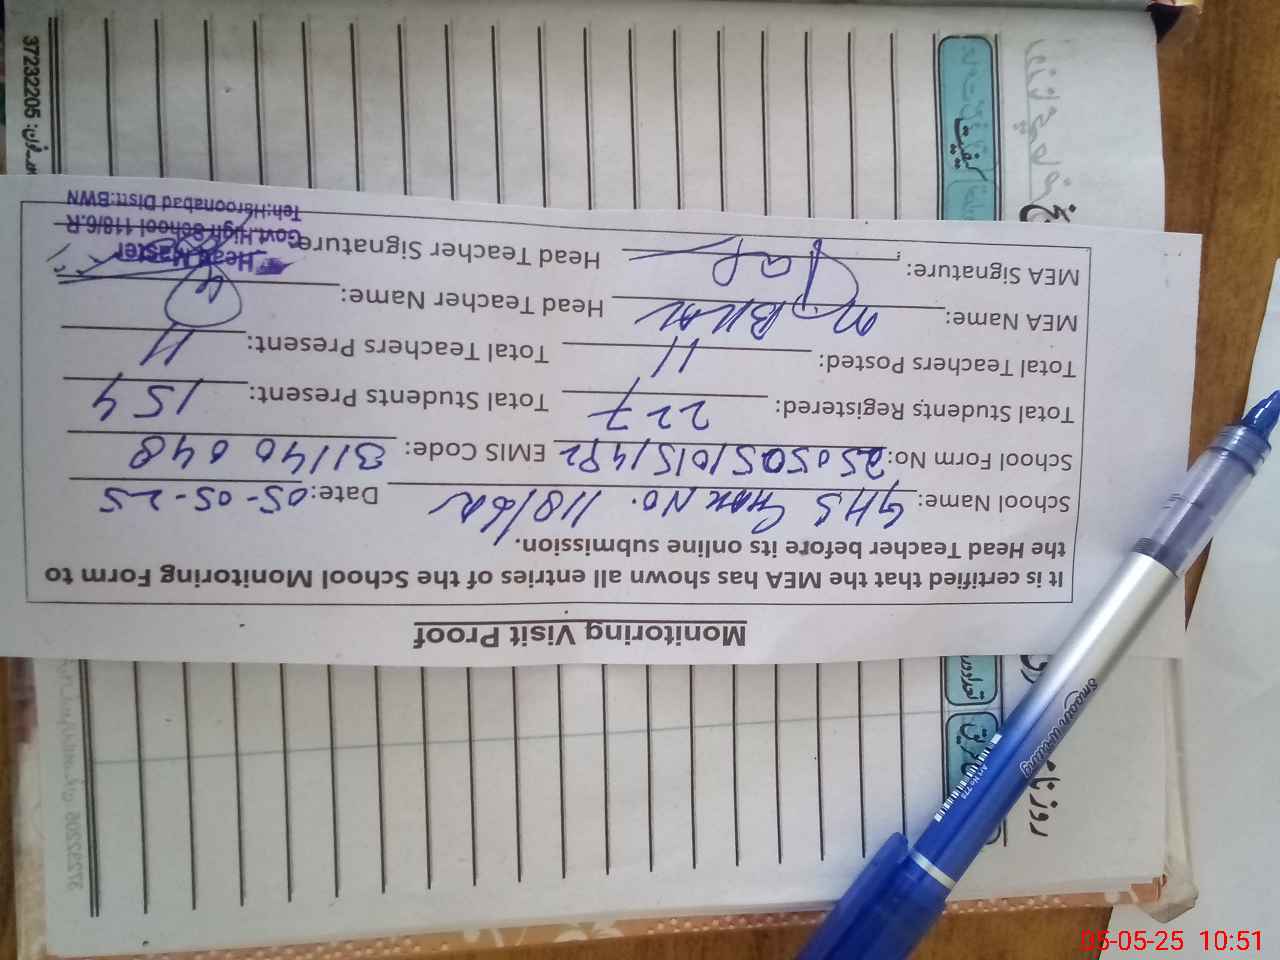 Monitoring Visit Proof
It is certified that the MEA has shown all entries of the School Monitoring Form to
the Head Teacher before its online submission.
School Name: GHS Chak No. 118/6R Date: 05-05-25
School Form No: 25050510151482 EMIS Code: 31140048
Total Students Registered: 227 Total Students Present: 154
Total Teachers Posted: 11 Total Teachers Present: 11
MEA Name: M. Head Teacher Name:
MEA Signature: Head Teacher Signature:
Head Master
Govt. High School 118/6.R
Teh: Haroonabad Distt: BWN
کیفیت
37232205
Smooth Writing
Art No 775
05-05-25 10:51